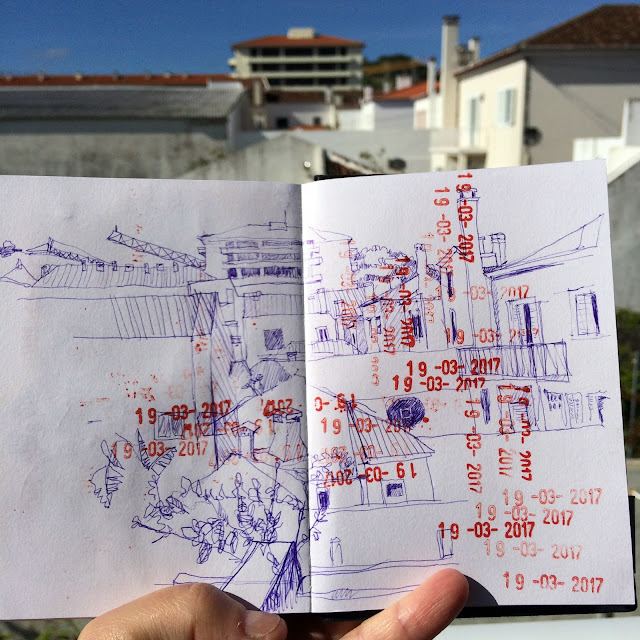 19-03-2017
19-03-2017
19-03-2017
19-03-2017
19-03-2017
19-03-2017
19-03-2017
19-03-2017
19-03-2017
19-03-2017
19-03-2017
19-03-2017
19-03-2017
19-03-2017
19-03-2017
19-03-2017
19-03-2017